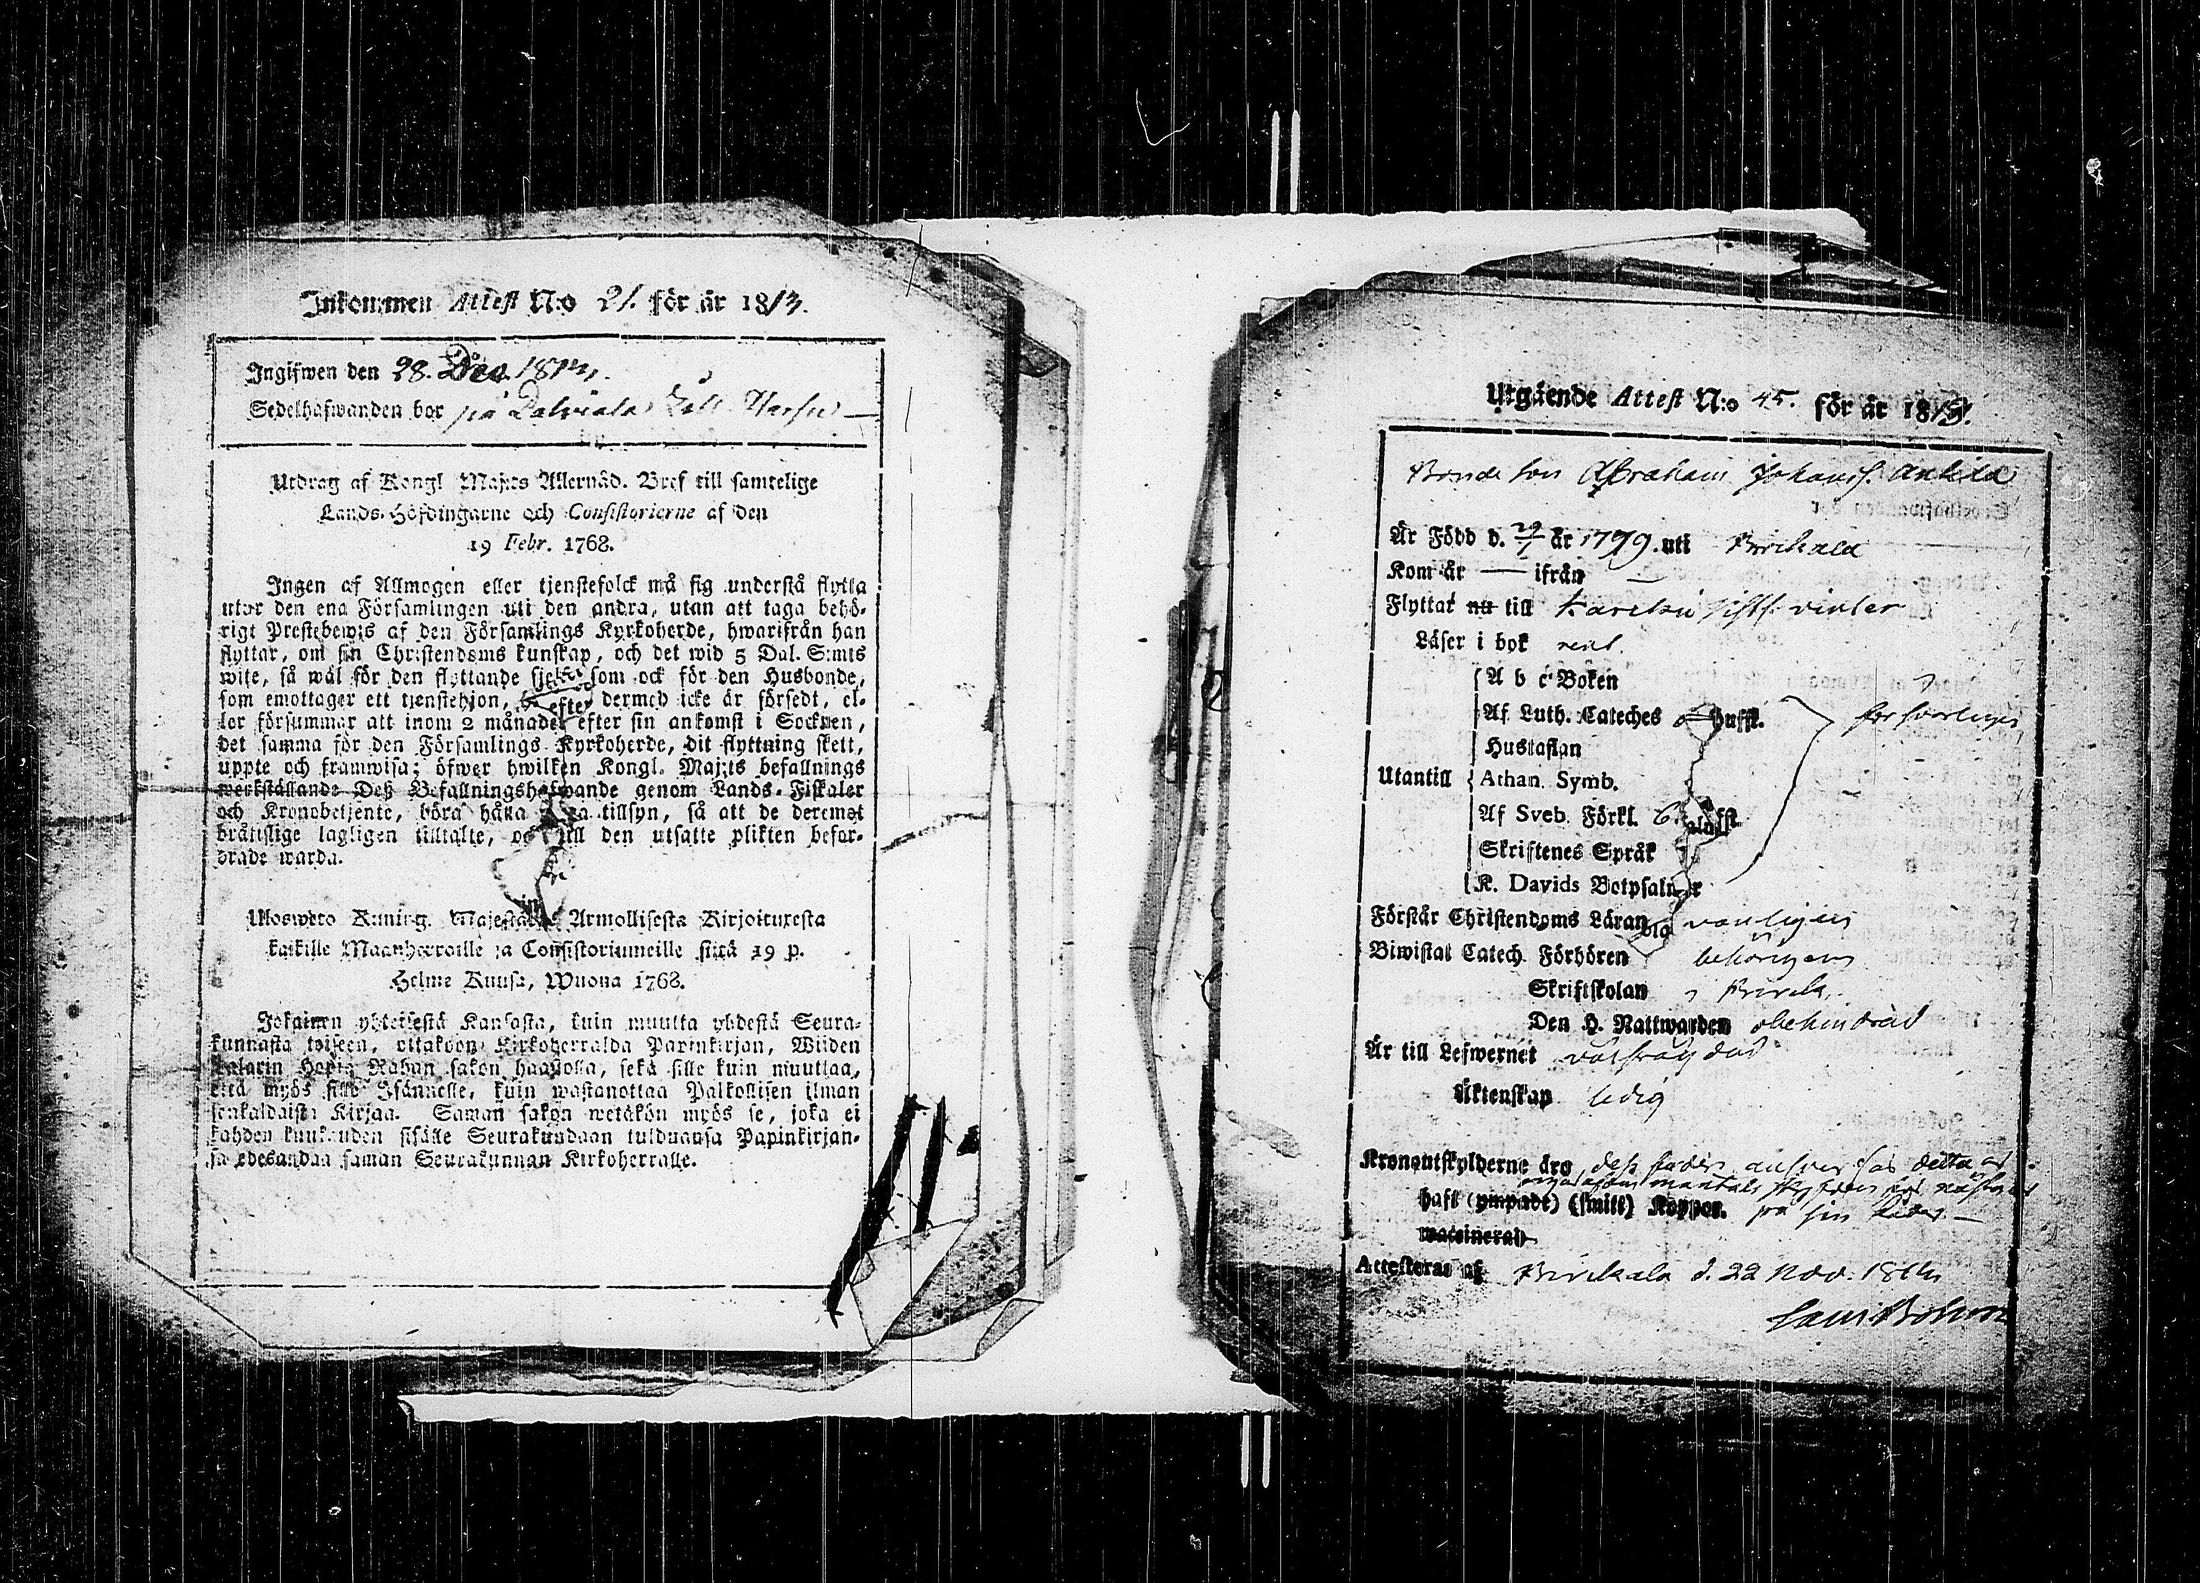 Inkommen Attest N:o 21. för år 1813.
Ingifwen den 28. Dec. 1813.
Sedelhafwanden bor på
Utdrag af Kongl Maj:ts Allernåd. Bref till samtelige
Lands-Höfdingarne och Consistorierne af den
19 Febr. 1768.
Ingen af Allmogen eller tjenstefolck må sig understå flytta
utur den ena Församlingen uti den andra, utan att taga behö-
rigt Prestebewis af den Församlings Kyrkoherde, hwarifrån han
flyttar, om sin Christendoms kunskap, och det wid 5 Dal. S:mts
wite, så wäl för den flyttande sjelf som ock för den Husbonde,
som emottager ett tjenstehjon, dermed icke är försedt, el-
ler försummar att inom 2 månader efter sin ankomst i Socknen,
det samma för den Församlings Kyrkoherde, dit flyttning skett,
uppte och framwisa; öfwer hwilken Kongl. Maj:ts befallnings
werkställande Deß Befallningshafwande genom Lands-Fiskaler
och Kronobetjente, böra hålla tillsyn, så att de deremot
bråttslige lagligen tilltalte, och till den utsatte plikten befor-
drade warda.
Ulosweto Kuning. Majestätin Armollisesta Kirjoituxesta
kaikille Maanherroille ja Consistoriumeille siitä 19 p.
Helme Kuusa, Wuona 1768.
Jokainen yhteisestä Kansasta, kuin muutta yhdestä Seura-
kunnasta toiseen, ottakoon Kirkoherralda Papinkirjan, Wiiden
Talarin Hopia Rahan sakon haastolla, sekä sille kuin muuttaa,
että myös sille Isännelle, kuin wastanottaa Palkollisen ilman
senkaldaista Kirjaa. Saman sakon wetäkön myös se, joka ei
kahden kuukauden sisälle Seurakundaan tulduansa Papinkirjan-
sa edesandaa saman Seurakunnan Kirkoherralle.
Utgående Attest N:o 45. för år 1813.
Bonde Son Abraham Johanss. Anttila
Är Född d. 29/1 år 1799. uti Birckala
Kom år — ifrån —
Flyttat nu till Karcku sistl. vinter
Läser i bok rent.
A b c Boken
Af Luth. Cateches Huffl.
Hustaflan
försvarligen
Utantill
Athan. Symb.
Af Sveb. Förkl.
Skriftenes Språk
K. Davids Botpsalmer
Förstår Christendoms Läran vanligen
Biwistat Catech. Förhören behörigen
Skriftskolan i Birck.
Den H. Nattwarden obehindrad
Är till Lefwernet välfrägdad
Äktenskap ledig
Kronoutskylderne äro
haft (ympade) (smitt) Koppor.
waccinerad
Attesteras af Birckala d. 22 Nov. 1813.